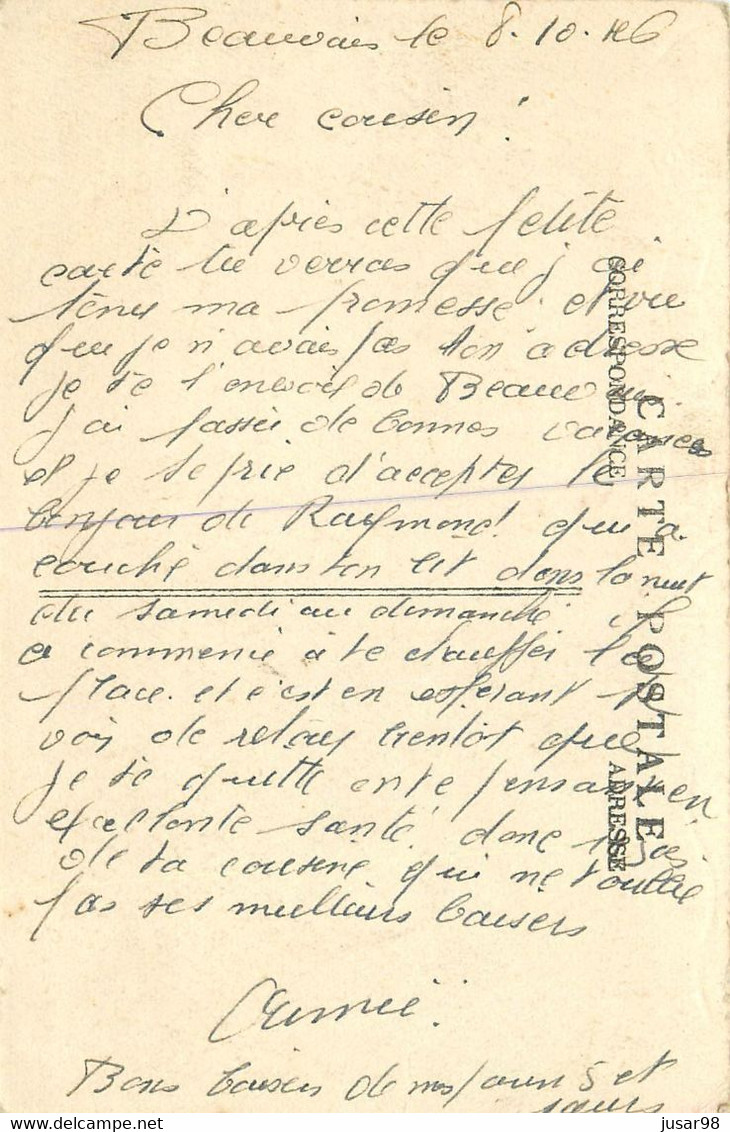 Beauvais le 8.10.46
Cher cousin!
D'après cette petite
carte tu verras que j'ai
tenu ma promesse. et vu
que je n'avais pas ton adresse
je te l'envoie de Beauvais.
j'ai passée de bonnes vacances
et je te prie d'accepter le
bonjour de Raymond qui a
couché dans ton lit dans la nuit
du samedi au dimanche. Il
a commencé à te chauffer la
place. et c'est en espérant
de retour bientot que
je te quitte en te pensant en
exellante santé donc
de ta cousine qui ne t'oublie
pas ses meilleurs baisers
Aimée.
Bons baisers de mes et
sœurs
CARTE POSTALE
CORRESPONDANCE
ADRESSE
jusar98